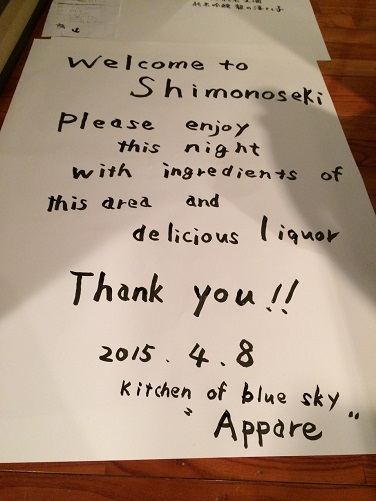 Welcome to
Shimonoseki
Please enjoy
this night
with ingredients of
this area and
delicious liquor
Thank you!!
2015. 4. 8
Kitchen of blue sky
"Appare"